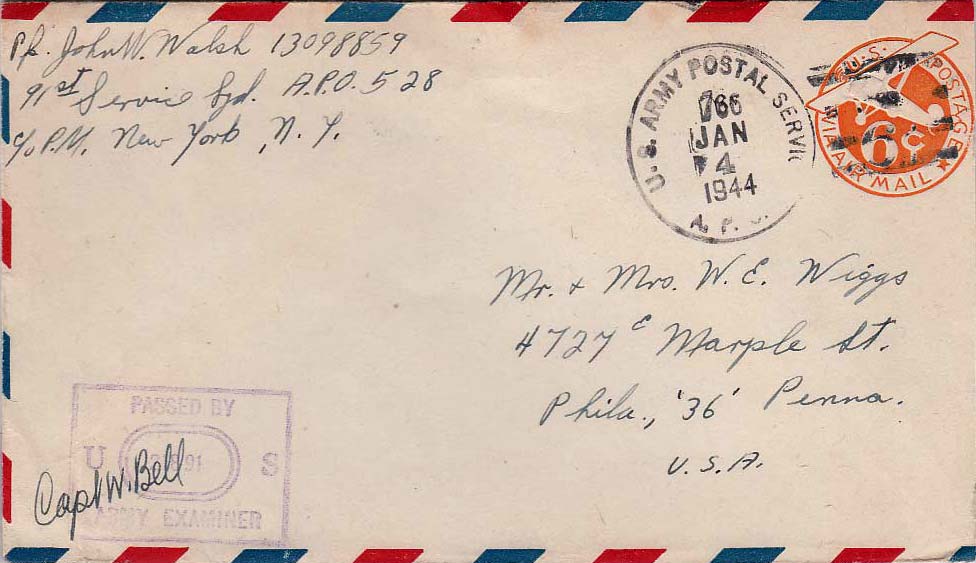 Pfc. John W. Walsh 13098859
91st Service Sqd. A.P.O. 528
c/o P.M. New York, N.Y.
U.S. ARMY POSTAL SERVI
JAN
4
1944
A. P.
U.S. POSTAGE
6¢
VIA AIR MAIL
Mr. + Mrs. W. E. Wiggs
4727 E Marple St.
Phila., '36' Penna.
U.S.A.
PASSED BY
U S
ARMY EXAMINER
Capt W. Bell